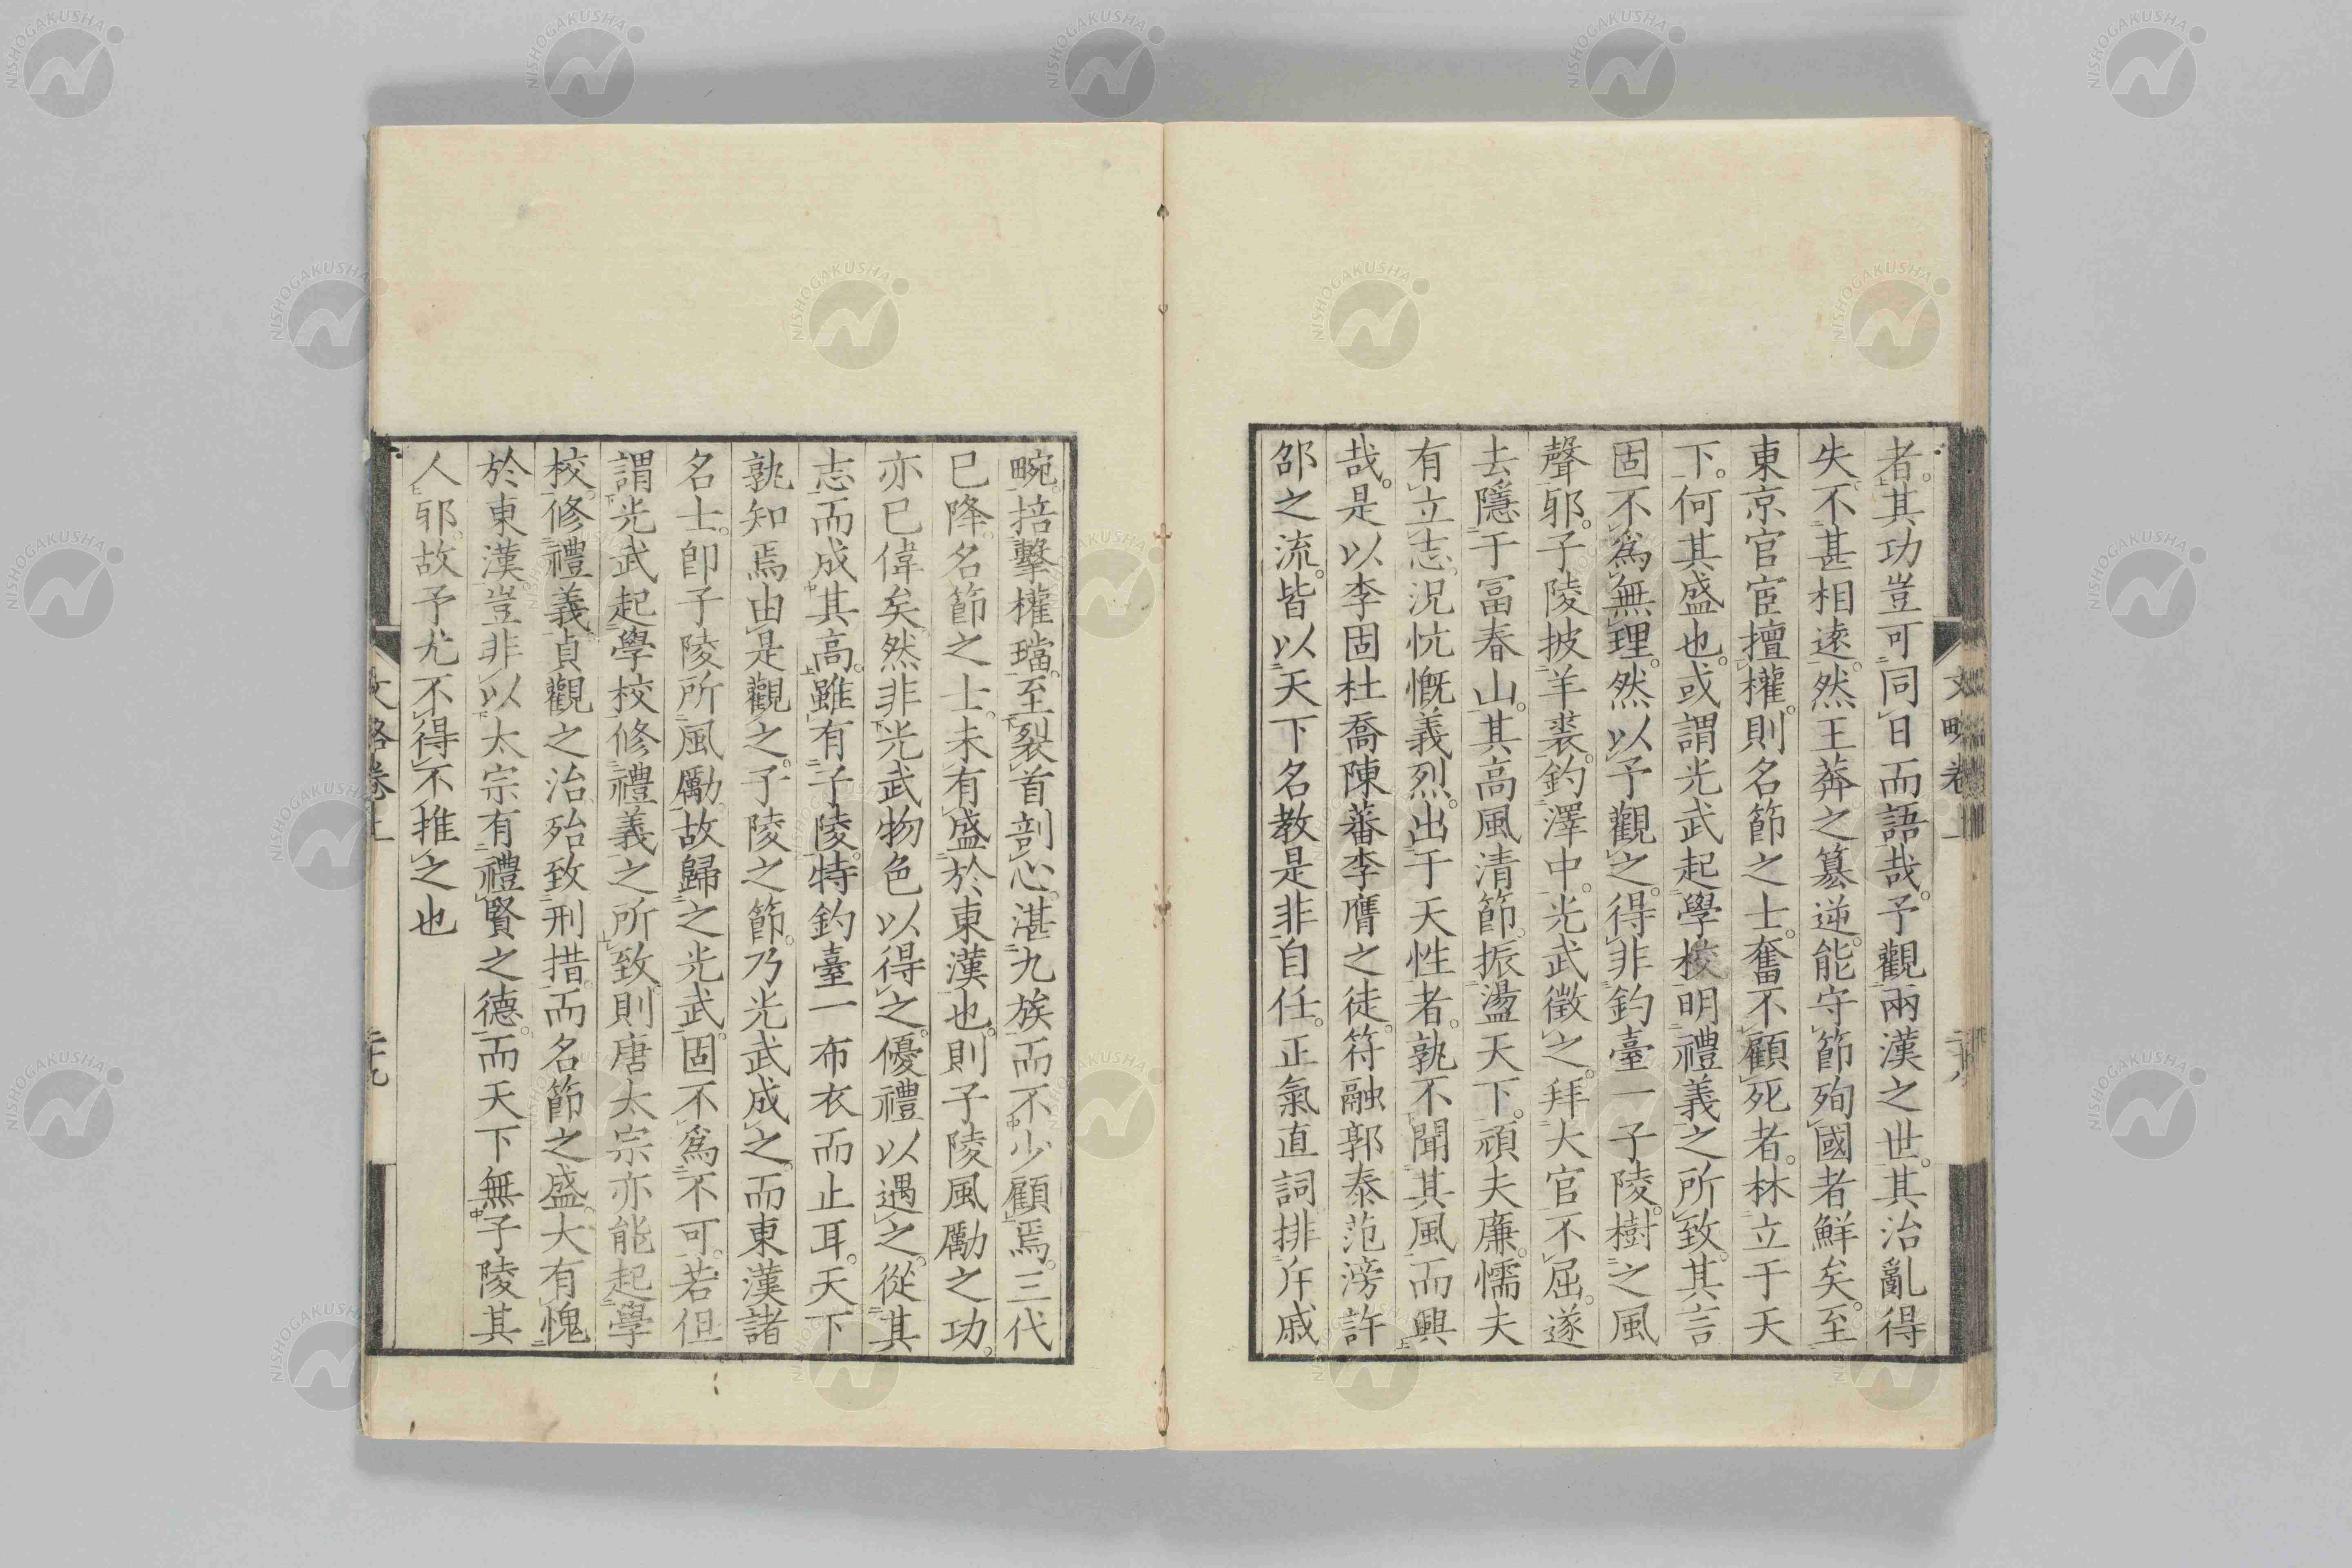 者。其功豈可同日而語哉。予觀兩漢之世。其治亂得
失。不甚相遠。然王莽之簒逆。能守節殉國者鮮矣。至
東京官宦擅權。則名節之士。奮不顧死者。林立于天
下。何其盛也。或謂光武起學校明禮義之所致。其言
固不爲無理。然以予觀之。得非釣臺一子陵。樹之風
聲邪。子陵披羊裘。釣澤中。光武徵之。拜大官不屈。遂
去隱于冨春山。其高風清節。振盪天下。頑夫廉。懦夫
有立志。況忼慨義烈。出于天性者。孰不聞其風而興
哉。是以李固杜喬陳蕃李膺之徒。符融郭泰范滂許
邵之流。皆以天下名教是非自任。正氣直詞。排斥戚
畹。掊擊權璫。至裂首剖心。湛九族而不少顧焉。三代
已降。名節之士。未有盛於東漢也。則子陵風勵之功。
亦已偉矣。然非光武物色以得之。優禮以遇之。從其
志而成其高。雖有子陵。特釣臺一布衣而止耳。天下
孰知焉。由是觀之。子陵之節。乃光武成之。而東漢諸
名士。即子陵所風勵。故歸之光武。固不爲不可。若但
謂光武起學校修禮義之所致。則唐太宗亦能起學
校。修禮義。貞觀之治。殆致刑措。而名節之盛。大有愧
於東漢。豈非以太宗有禮賢之德。而天下無子陵其
人邪。故予尤不得不推之也
文略卷上
二十九